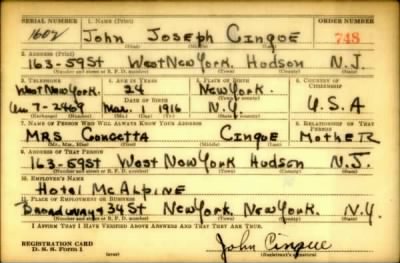 SERIAL NUMBER 1. NAME (Print) ORDER NUMBER
1602 John Joseph Cinque 748
2. ADDRESS (Print)
163-59St West New York. Hudson N.J.
(Number and street or R. F. D. number) (Town) (County) (State)
3. TELEPHONE 4. AGE IN YEARS 5. PLACE OF BIRTH 6. COUNTRY OF CITIZENSHIP
West New York. 24 New York.
(Exchange) DATE OF BIRTH (Town or county)
Un 7-2469 Mar. 1 1916 N.Y U.S.A
(Number) (Mo.) (Day) (Yr.) (State or country)
7. NAME OF PERSON WHO WILL ALWAYS KNOW YOUR ADDRESS 8. RELATIONSHIP OF THAT PERSON
MRS Concetta Cinque Mother
(Mr., Mrs., Miss) (First) (Middle) (Last)
9. ADDRESS OF THAT PERSON
163-59St West New York Hudson N.J.
(Number and street or R. F. D. number) (Town) (County) (State)
10. EMPLOYER'S NAME
Hotel McAlpine
11. PLACE OF EMPLOYMENT OR BUSINESS
Broadway & 34 St New York. New York. N.Y.
(Number and street or R. F. D. number) (Town) (County) (State)
I AFFIRM THAT I HAVE VERIFIED ABOVE ANSWERS AND THAT THEY ARE TRUE.
REGISTRATION CARD
D. S. S. Form 1 John Cinque
(over) (Registrant's signature)